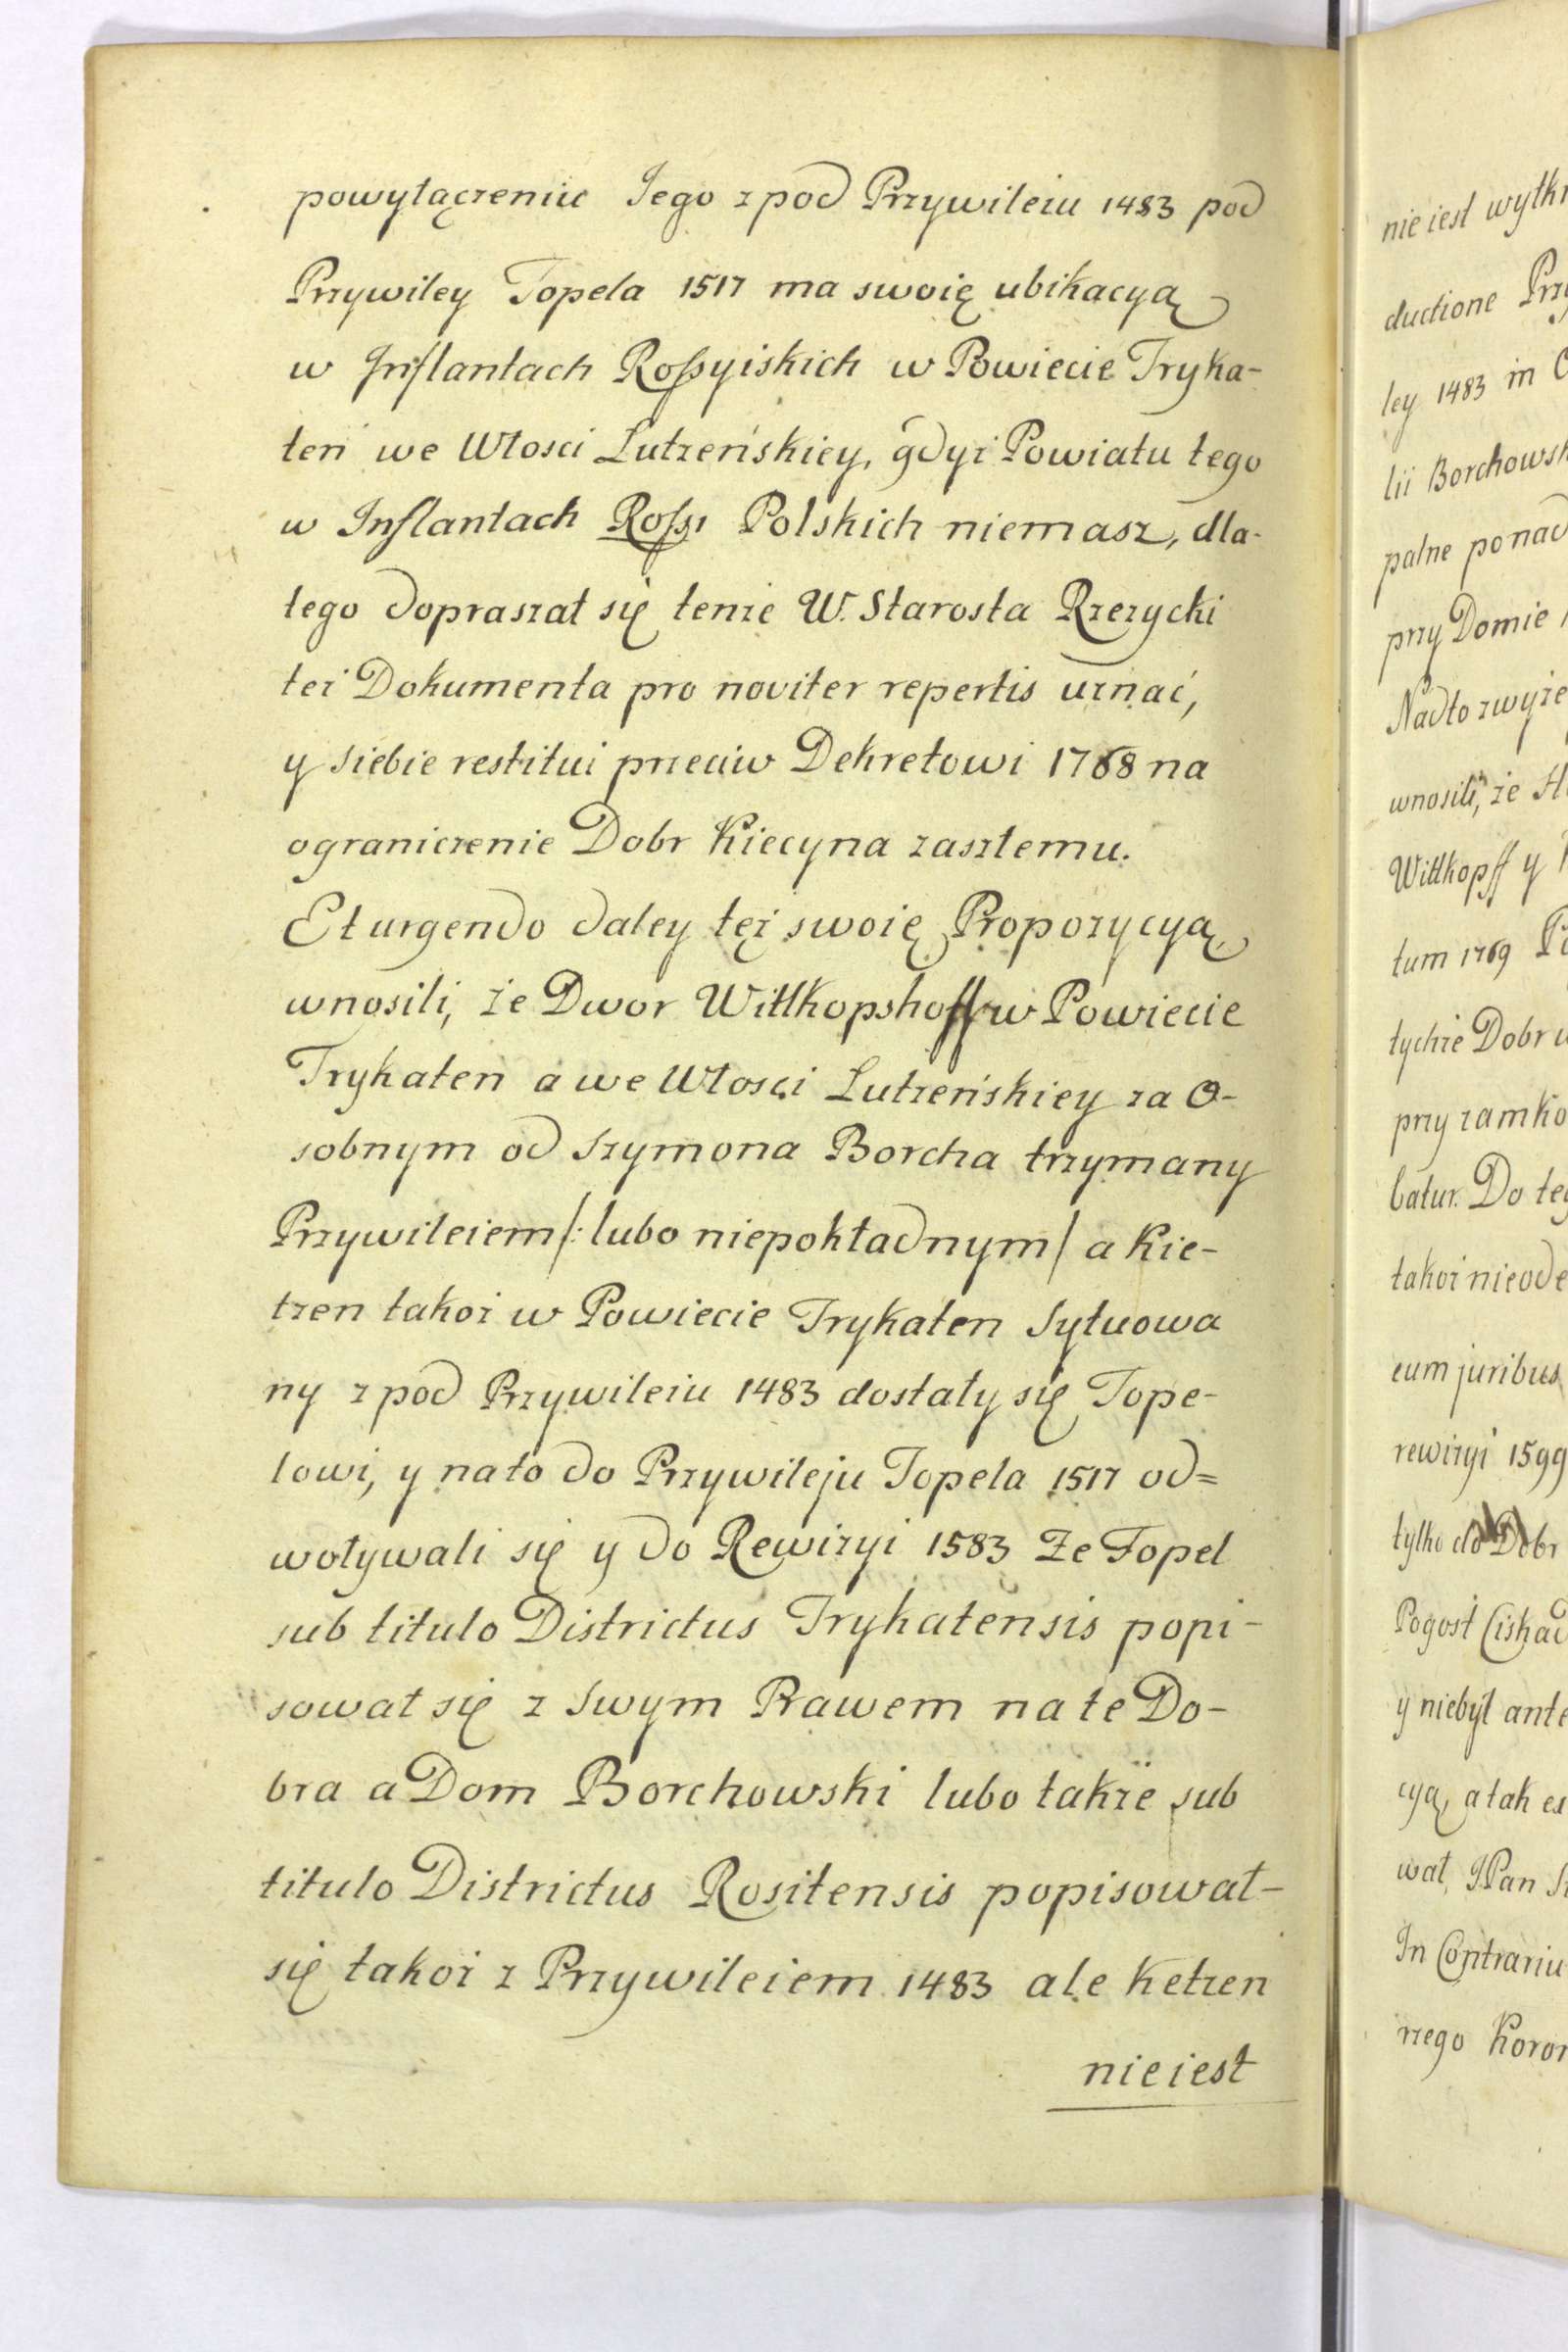 powyłączeniu Jego z pod Przywileiu 1483 pod
Przywiley Topela 1517 ma swoię ubikacyą
w Inflantach Roßyiskich w Powiecie Tryka-
ten we Włosci Lutzeńskiey, gdyż Powiatu tego
w Inflantach Roßı Polskich niemasz, dla-
tego dopraszał się tenże W. Starosta Rzeżycki
też Dokumenta pro noviter repertis uznać,
y siebie restitui przeciw Dekretowi 1768 na
ograniczenie Dobr Kiecyna zaszłemu.
Et urgendo daley też swoię Propozycyą
wnosili, że Dwor Wittkopshoff w Powiecie
Trykaten a we Włosci Lutzeńskiey za O-
sobnym od Szymona Borcha trzymany
Przywileiem /: lubo niepokładnym / a Kie-
tzen takoż w Powiecie Trykaten Sytuowa
ny z pod Przywileiu 1483 dostały się Tope-
lowi, y na to do Przywileju Topela 1517 od=
woływali się y do Rewizyi 1583 Że Topel
sub titulo Districtus Trykatensis popi-
sował się z Swym Prawem na te Do-
bra a Dom Borchowski lubo także sub
titulo Districtus Rositensis popisował-
się takoż z Przywileiem 1483 ale Ketzen
nieiest
nie iest
ductione
ley 1483 in
lii
palne ponad
przy Domie
Nadto zwyże
wnosili, że
Wittkopff y
tum 1769
tychże Dobr
przy zamko
batur. Do
takoż nie
cum juribus
rewizyi 1599
tylko do Dobr
Pogost
y niebył ante
cyą, a tak
wał JPan
In Contrariu